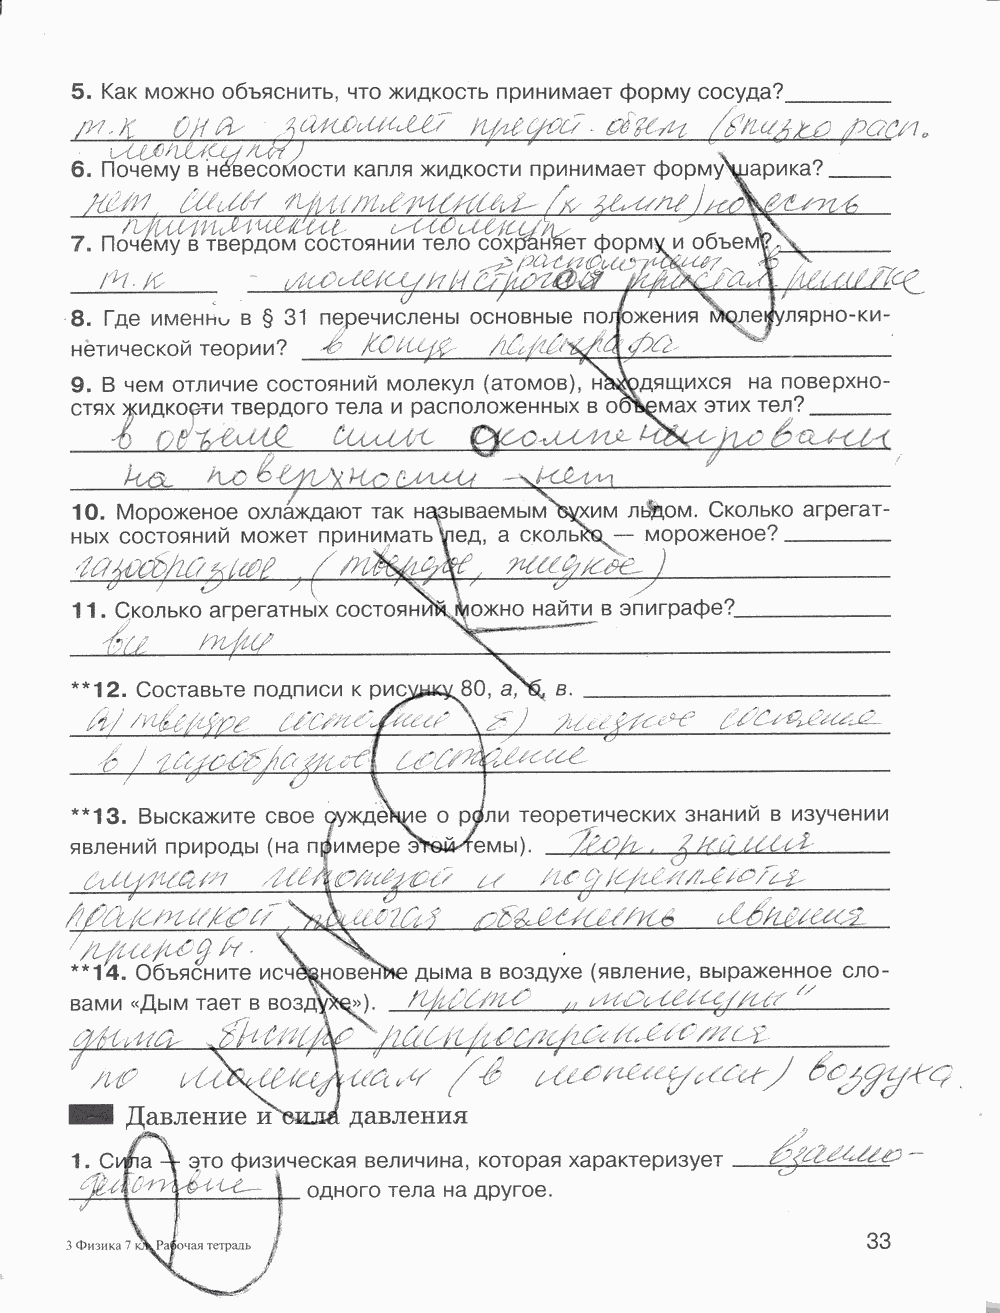 5. Как можно объяснить, что жидкость принимает форму сосуда?
т.к она заполняет предост. объем (близко расп.
молекулы)
6. Почему в невесомости капля жидкости принимает форму шарика?
нет силы притяжения (к земле) но есть
притяжение молекул
7. Почему в твердом состоянии тело сохраняет форму и объем?
расположены в
т.к - молекулы строго кристал. решетке
8. Где именно в § 31 перечислены основные положения молекулярно-ки-
нетической теории? в конце параграфа
9. В чем отличие состояний молекул (атомов), находящихся на поверхно-
стях жидкости твердого тела и расположенных в объемах этих тел?
в объеме силы скомпенсированы
на поверхности - нет
10. Мороженое охлаждают так называемым сухим льдом. Сколько агрегат-
ных состояний может принимать лед, а сколько — мороженое?
газообразное, (твердое, жидкое)
11. Сколько агрегатных состояний можно найти в эпиграфе?
все три
**12. Составьте подписи к рисунку 80, а, б, в.
а) твердое состояние б) жидкое состояние
в) газообразное состояние
**13. Выскажите свое суждение о роли теоретических знаний в изучении
явлений природы (на примере этой темы). Теор. знания
служат гипотезой и подкрепляются
практикой, помогая объяснить явления
природы.
**14. Объясните исчезновение дыма в воздухе (явление, выраженное сло-
вами «Дым тает в воздухе»). просто „молекулы“
дыма быстро распространяются
по молекулам (в молекулах) воздуха.
Давление и сила давления
1. Сила — это физическая величина, которая характеризует взаимо-
действие одного тела на другое.
3 Физика 7 кл. Рабочая тетрадь
33